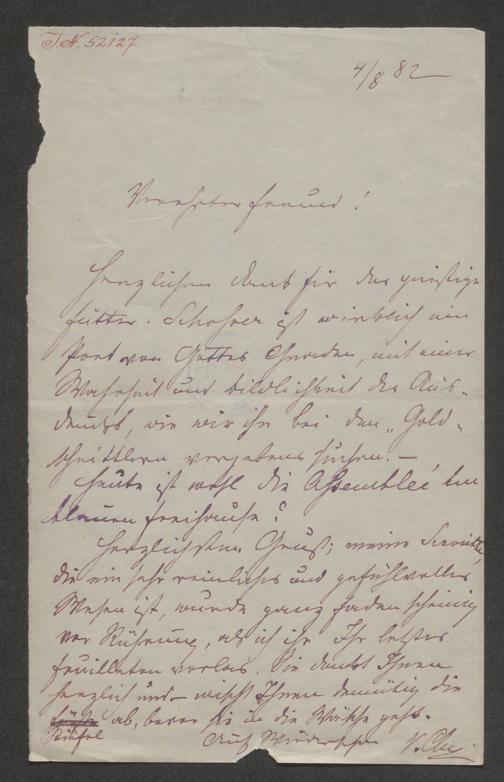 I.N. 52127
4/8 82
Verehrter Freund!
Herzlichen Dank für das geistige
Futter. Schohrer ist wirklich ein
Poet von Gottes Gnaden, mit einer
Wahrheit und Bildlichkeit des Aus-
drucks, wie wir sie bei den "Gold-
schnittlern vergebens suchen. –
Heute ist wohl die Assemblée im
blauen Freihause?
Herzlichsten Gruß; meine Serviette,
die ein sehr reinliches und gefühlvolles
Wesen ist, wurde ganz fadenscheinig
vor Rührung, als ich ihr Ihr letztes
Feuilleton vorlas. Sie dankt Ihnen
herzlich und – wischt Ihnen demütig die
ab, bevor sie in die Wäsche geht.
Stiefel
Auf Wiedersehen